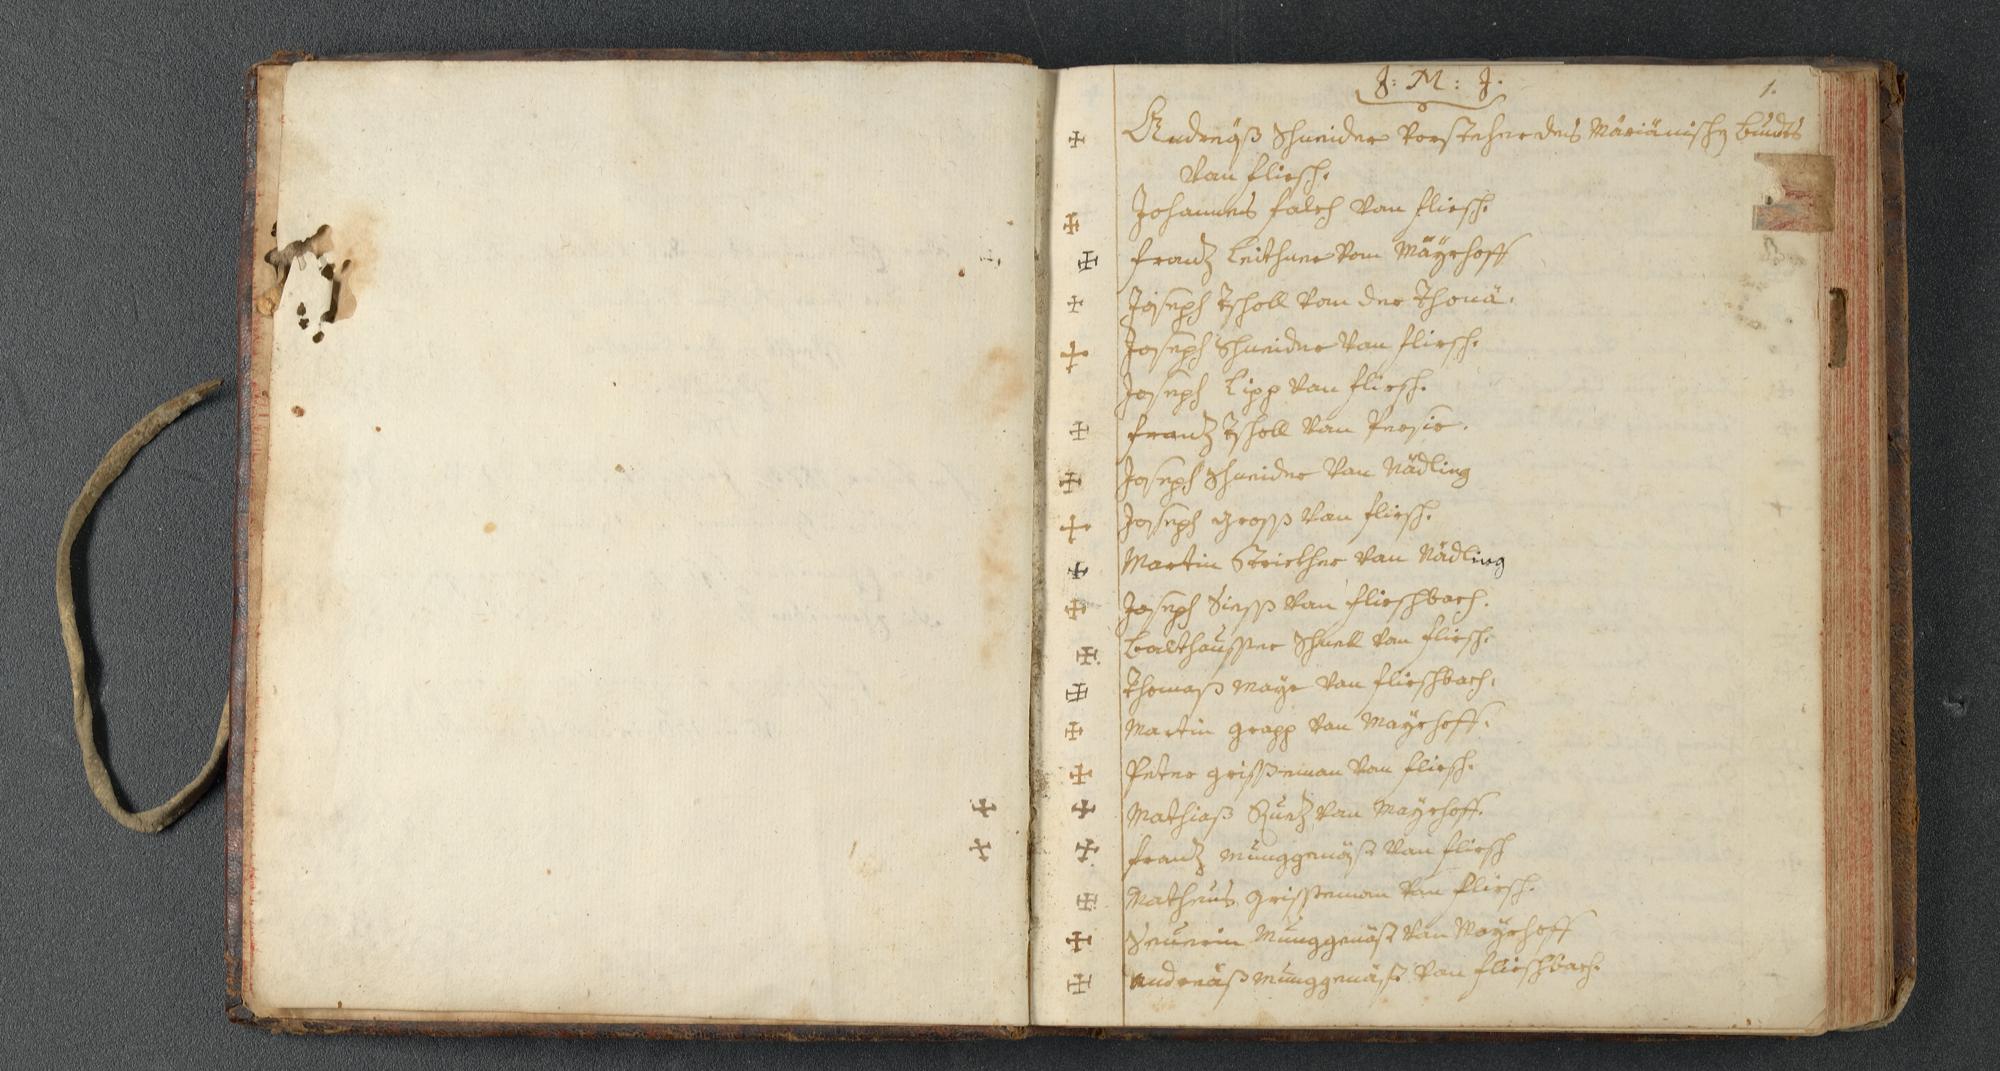 J: M: J.
1.
Andreas Schneider Vorsteher des Märiänischen Bundts
Von fliersch.
Johannes falch Von fliersch.
frantz Leithner Von Mäÿrhoff
Joseph Tscholl Von der Thonä.
Joseph Schneider Von fliersch.
Joseph Lipp Von fliersch.
frantz Tscholl Von Persir.
Joseph Schneider Von Nädling
Joseph gross Von fliersch.
Martin Von Nädling
Joseph Siess Von flierschbach.
Balthausser Schnell Von fliersch.
Thomaß Mayr Von flierschbach.
Martin grapp Von Mayrhoff.
Peter grißeman Von fliersch.
Mathiaß Von Mayrhoff.
frantz Munggenäst Von fliersch
Matheus grisseman Von fliersch.
Seuerin Munggenäst Von Mayrhoff
Andreäß Munggenäst Von flierschbach.